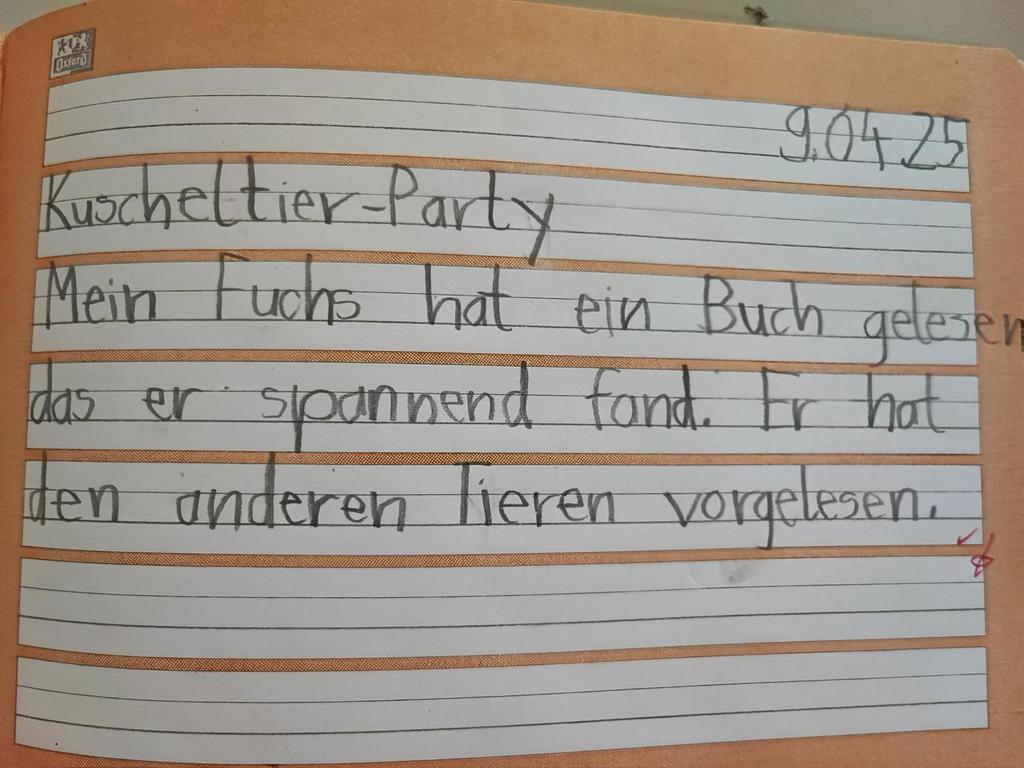 Oxford
9.04.25
Kuscheltier-Party
Mein Fuchs hat ein Buch gelesen
das er spannend fand. Er hat
den anderen Tieren vorgelesen.